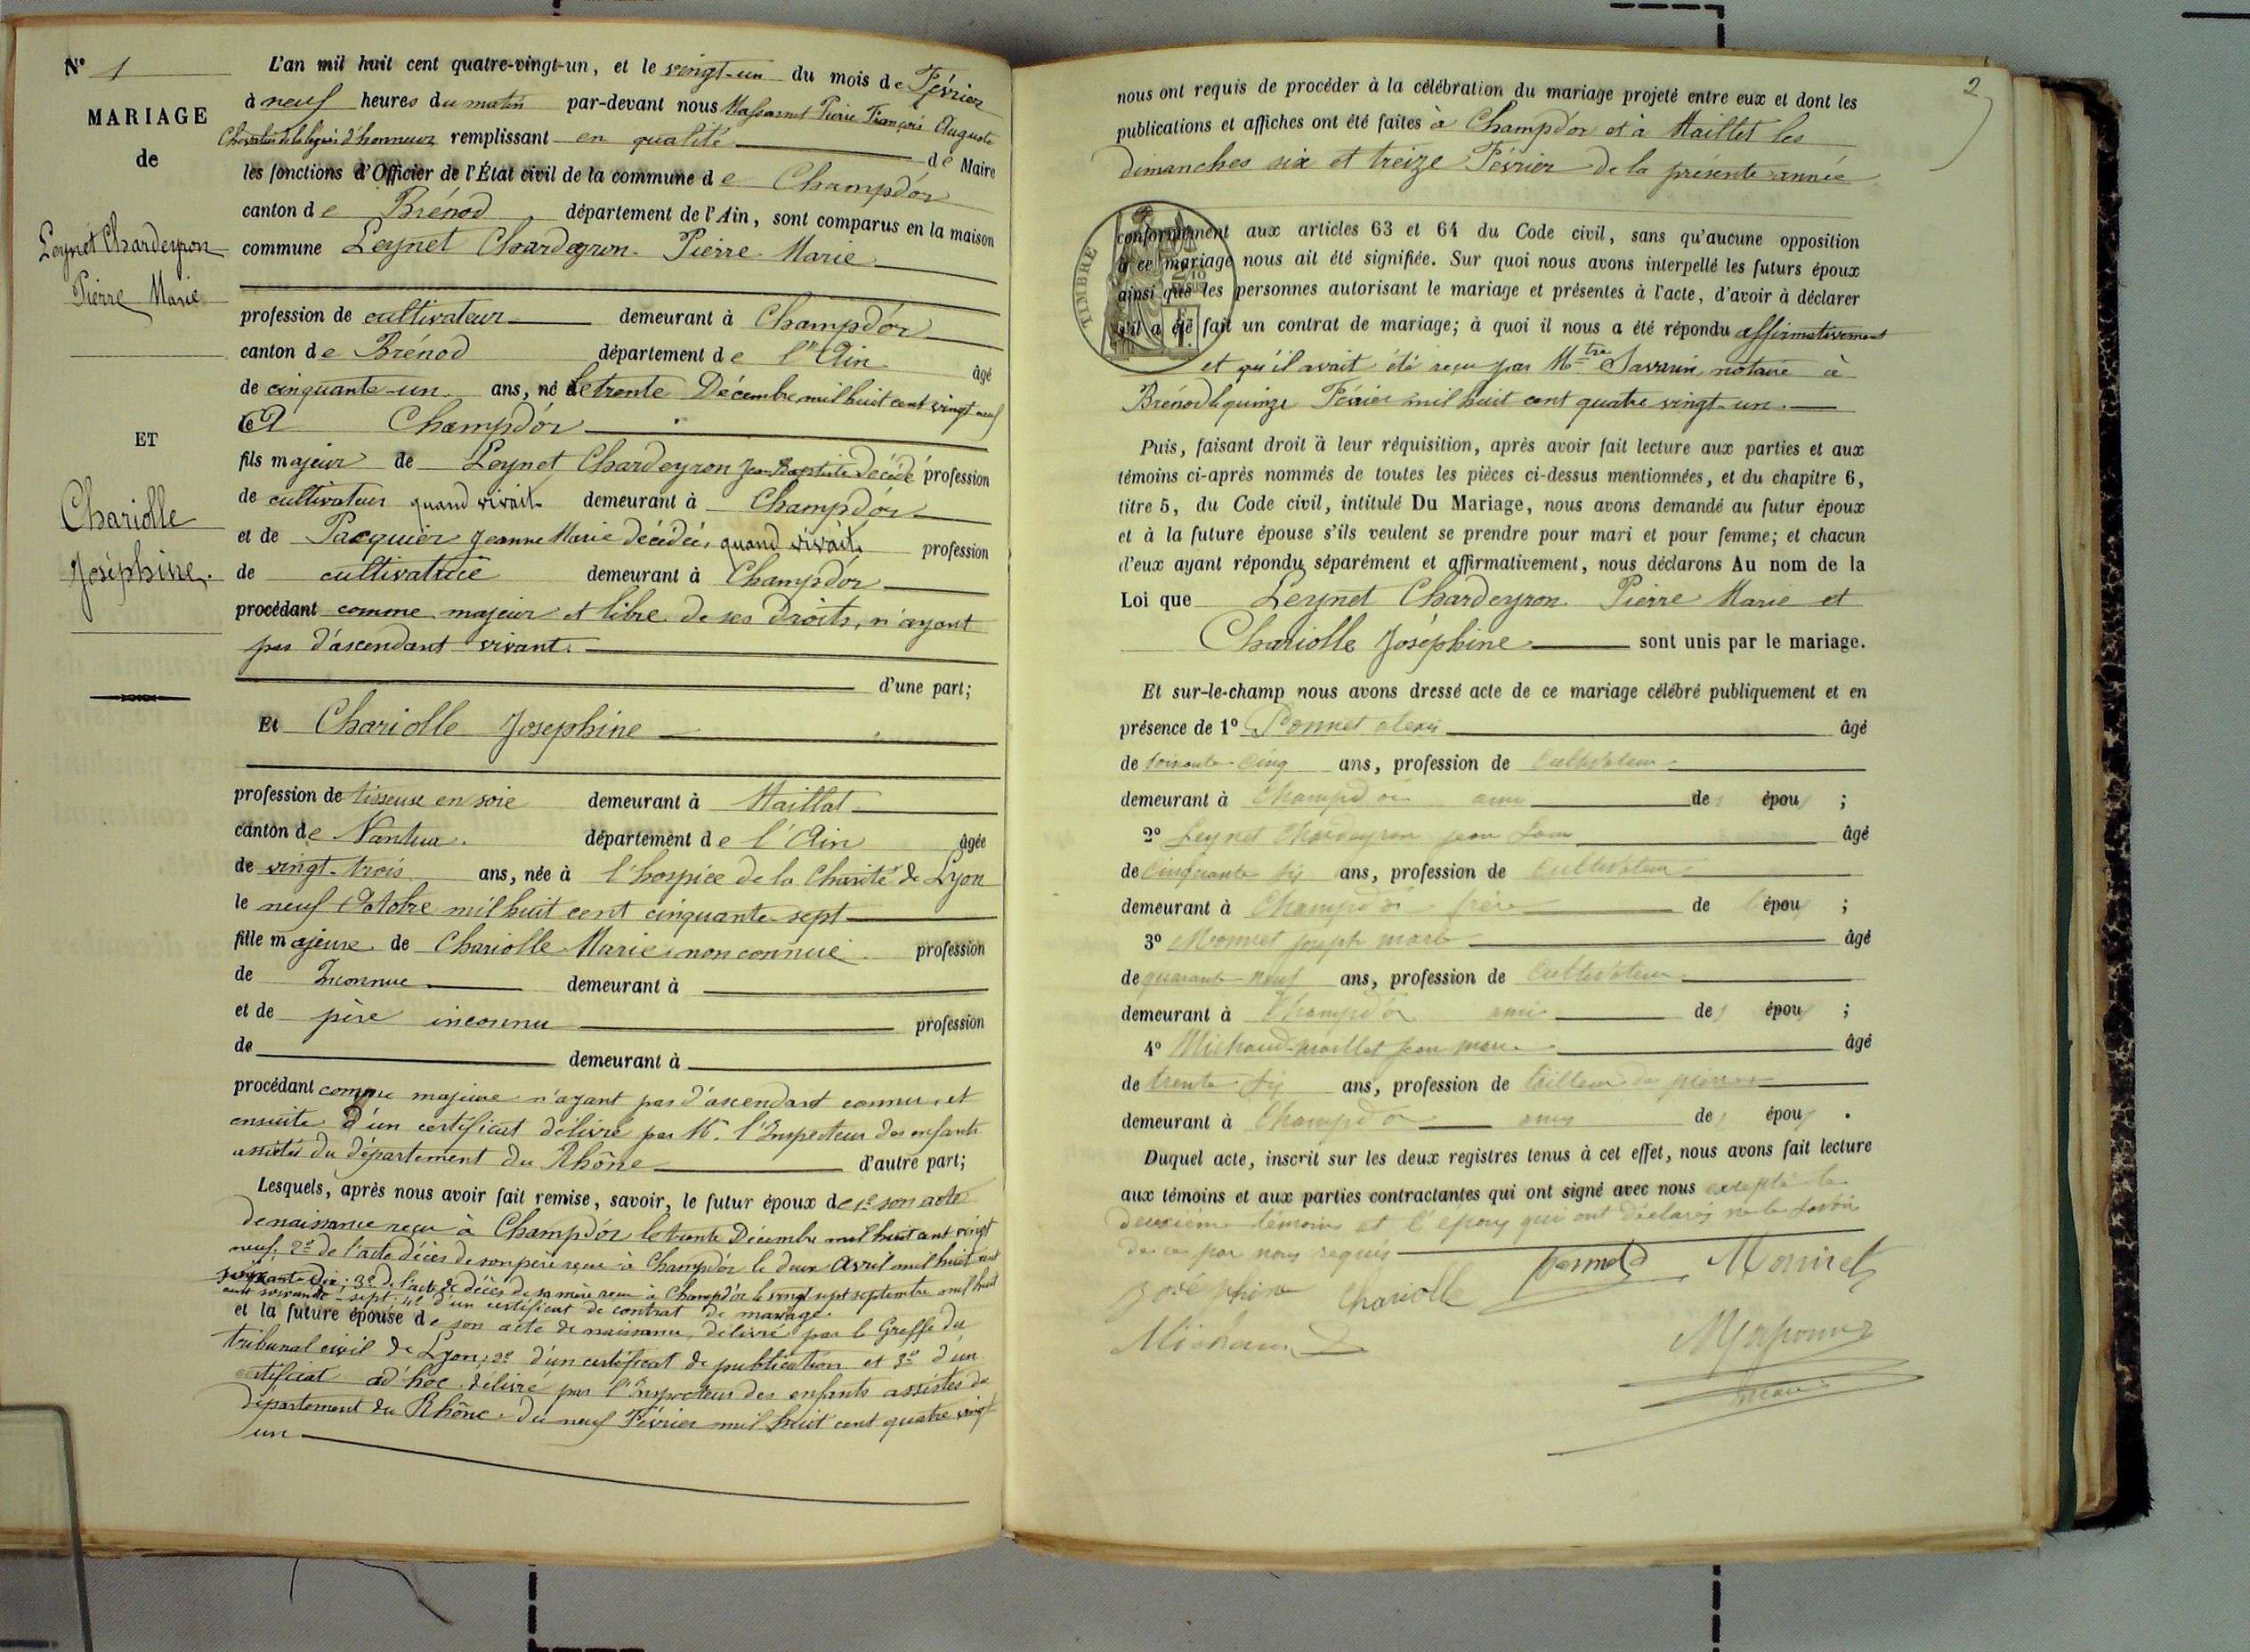 N° 1
MARIAGE
de
Leynet Chardeyron
Pierre Marie
ET
Chariolle
Joséphine.
L'an mil huit cent quatre-vingt-un, et le vingt-un du mois de Février
à neuf heures du matin par-devant nous Pierre François Auguste
Chevalier de la légion d'honneur remplissant en qualité de Maire
les fonctions d'Officier de l'État civil de la commune de Champdor
canton de Brénod département de l'Ain, sont comparus en la maison
commune Leynet Chardeyron Pierre Marie
profession de cultivateur demeurant à Champdor
canton de Brénod département de l'Ain âgé
de cinquante-un ans, né le trente Décembre mil huit cent vingt neuf
à Champdor
fils majeur de Leynet Chardeyron Jean Baptiste décédé profession
de cultivateur quand vivait demeurant à Champdor
et de Pacquier Jeanne Marie décédée, quand vivait, profession
de cultivatrice demeurant à Champdor
procédant comme majeur et libre de ses droits, n'ayant
pas d'ascendant vivant.
d'une part;
Et Chariolle Josephine
profession de tisseuse en soie demeurant à Maillat
canton de Nantua département de l'Ain âgée
de vingt-trois ans, née à l'hospice de la Charité de Lyon
le neuf Octobre mil huit cent cinquante-sept
fille majeure de Chariolle Marie, non connue profession
de Inconnue demeurant à
et de père inconnu profession
de demeurant à
procédant comme majeure n'ayant pas d'ascendant connu, et
ensuite d'un certificat délivré par Mr. l'Inspecteur des enfants
assistés du département du Rhône d'autre part;
Lesquels, après nous avoir fait remise, savoir, le futur époux de 1° son acte
de naissance reçu à Champdor le trente Décembre mil huit cent vingt
neuf, 2° de l'acte décès de son père reçu à Champdor le deux Avril mil huit cent
soixante-dix; 3° de l'acte de décès de sa mère reçu à Champdor le vingt sept septembre mil huit
cent soixante-sept. 4° d'un certificat de contrat de mariage.
et la future épouse de son acte de naissance, délivré par le Greffe du
tribunal civil de Lyon; 2° d'un certificat de publication et 3° d'un
certificat ad'hoc délivré par l'Inspecteur des enfants assistés du
département du Rhône du neuf Février mil huit cent quatre vingt
un
2
nous ont requis de procéder à la célébration du mariage projeté entre eux et dont les
publications et affiches ont été faites à Champdor et à Maillat les
dimanches six et treize Février de la présente année
TIMBRE
conformément aux articles 63 et 64 du Code civil, sans qu'aucune opposition
à ce mariage nous ait été signifiée. Sur quoi nous avons interpellé les futurs époux
ainsi que les personnes autorisant le mariage et présentes à l'acte, d'avoir à déclarer
s'il a été fait un contrat de mariage; à quoi il nous a été répondu affirmativement
et qu'il avait été reçu par Mtre Savarin, notaire à
Brénod le quinze Février mil huit cent quatre vingt-un.
Puis, faisant droit à leur réquisition, après avoir fait lecture aux parties et aux
témoins ci-après nommés de toutes les pièces ci-dessus mentionnées, et du chapitre 6,
titre 5, du Code civil, intitulé Du Mariage, nous avons demandé au futur époux
et à la future épouse s'ils veulent se prendre pour mari et pour femme; et chacun
d'eux ayant répondu séparément et affirmativement, nous déclarons Au nom de la
Loi que Leynet Chardeyron Pierre Marie et
Chariolle Joséphine sont unis par le mariage.
Et sur-le-champ nous avons dressé acte de ce mariage célébré publiquement et en
présence de 1° Ponnet alexis âgé
de soixante-cinq ans, profession de cultivateur
demeurant à Champdor ami des époux ;
2° Leynet Chardeyron jean Louis âgé
de cinquante six ans, profession de cultivateur
demeurant à Champdor frère de l'époux ;
3° Monnet joseph marie âgé
de quarante neuf ans, profession de cultivateur
demeurant à Champdor ami des époux ;
4° Michaud-maillet jean marie âgé
de trente six ans, profession de tailleur de pierres
demeurant à Champdor ami des époux .
Duquel acte, inscrit sur les deux registres tenus à cet effet, nous avons fait lecture
aux témoins et aux parties contractantes qui ont signé avec nous excepté le
deuxième témoin et l'époux qui ont déclarés ne le savoir
de ce par nous requis
Joséphine Chariolle Ponnet Monnet
Michaud
Maire